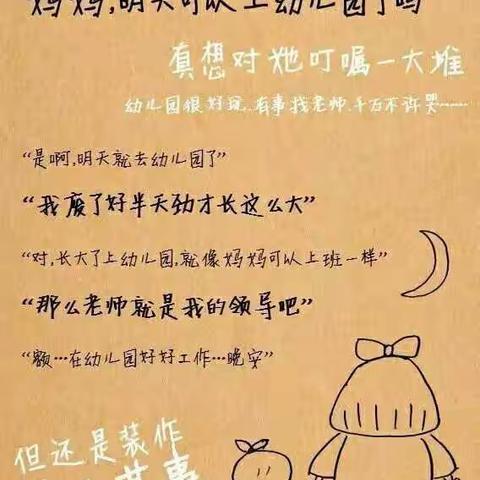 妈妈,明天可以上幼儿园了吗
真想对她叮嘱一大堆
幼儿园很好玩..有事找老师.千万不许哭……
“是啊,明天就去幼儿园了”
“我废了好半天劲才长这么大”
“对,长大了上幼儿园,就像妈妈可以上班一样”
“那么老师就是我的领导吧”
“额…在幼儿园好好工作…晚安”
但还是装作